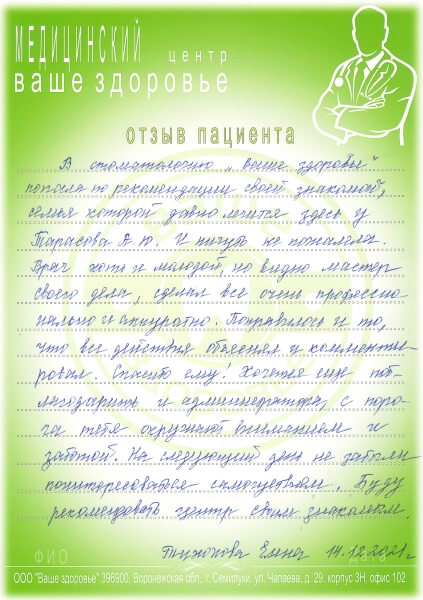 МЕДИЦИНСКИЙ центр
ваше здоровье
отзыв пациента
В стоматологию "Ваше здоровье"
попала по рекомендации своей знакомой,
семья которой давно лечится здесь у
Тарасова А.Ю. И ничуть не пожалела.
Врач хоть и молодой, но видно мастер
своего дела, сделал все очень профессио-
нально и аккуратно. Понравилось и то,
что все действия объяснял и комменти-
ровал. Спасибо ему! Хочется еще поб-
лагодарить и администратора, с поро-
га тебя окружают вниманием и
заботой. На следующий день не забыли
поинтересоваться самочувствием. Буду
рекомендовать центр своим знакомым.
Елена 14.12.2021г
ФИО дата
ООО "Ваше здоровье" 396900, Воронежская обл., г. Семилуки, ул. Чапаева, д. 29. корпус 3Н, офис 102